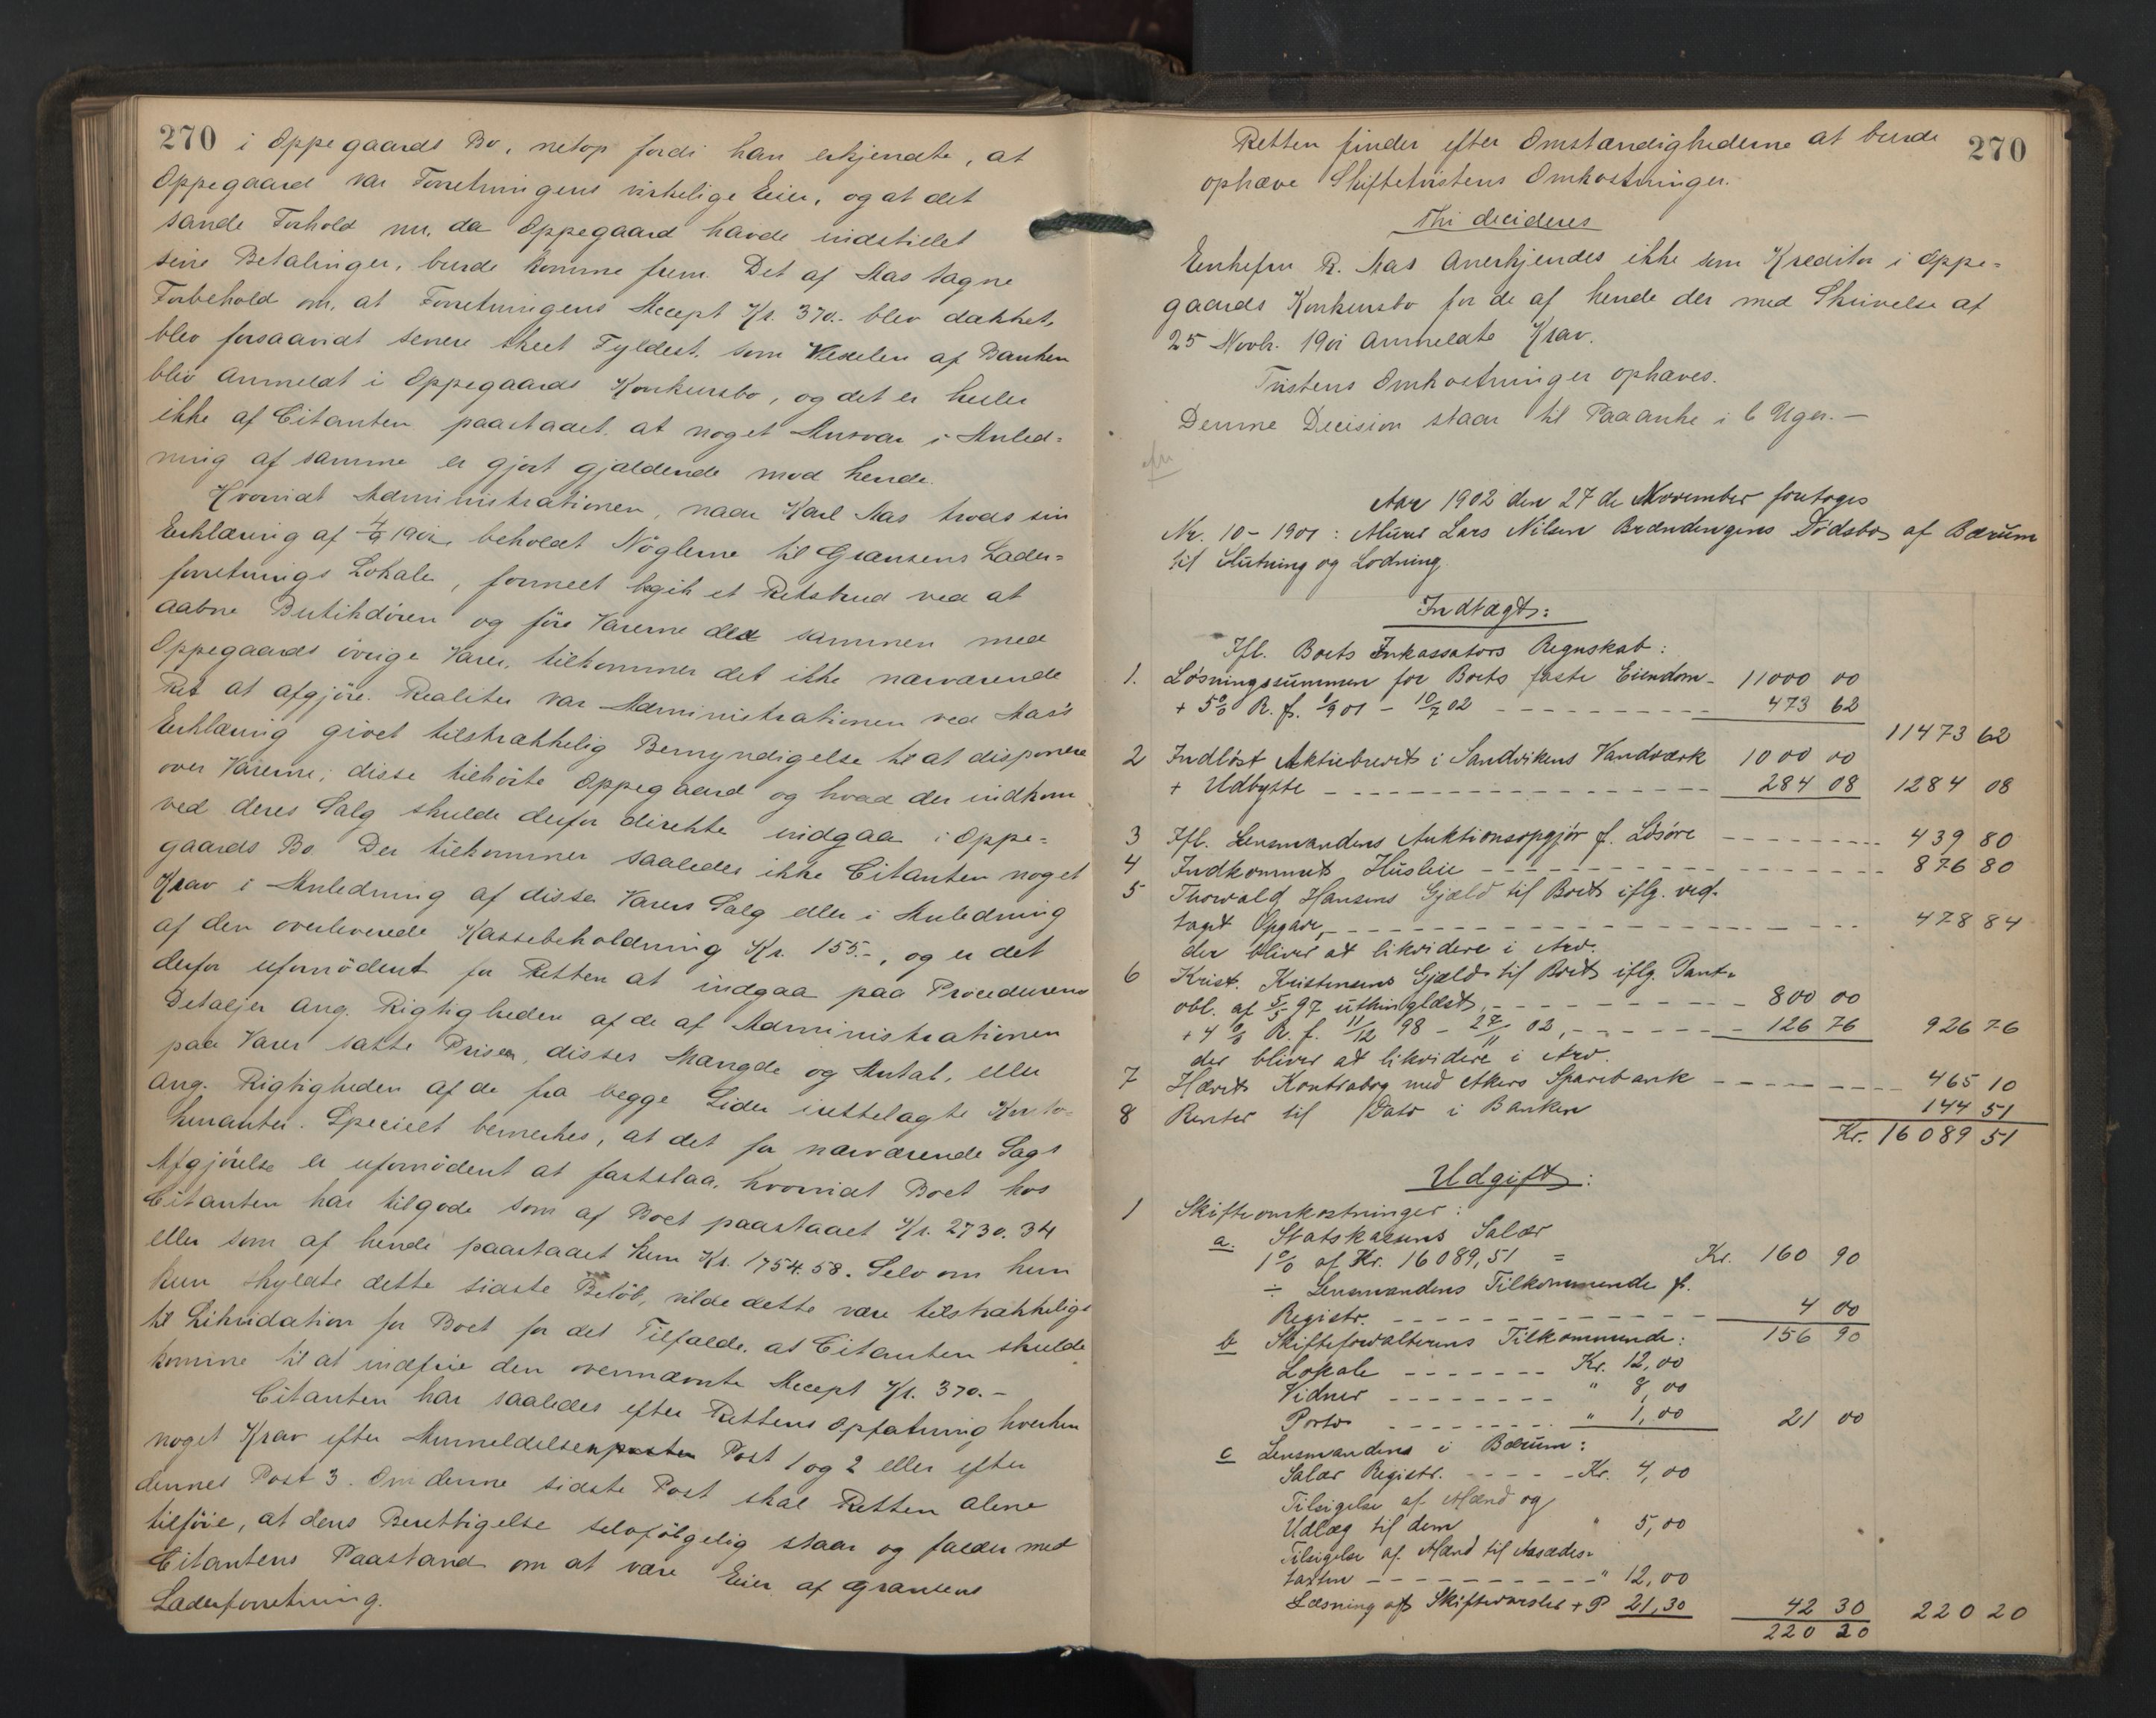 270 i Oppegaards Bo, netop fordi han erkjendte, at
Oppegaard var Forretningens virkelige Eier, og at det
sande Forhold nu, da Oppegaard havde indstillet
sine Betalinger, burde komme frem. Det af Aas tagne
Forbehold om, at Forretningens Accept Kr. 370.- blev dækket,
blev forsaavidt senere skeet Fyldest, som Vexelen af Banken
blev anmeldt i Oppegaards Konkursbo, og det er heller
ikke af Citanten paastaaet, at noget Ansvar i Anled-
ning af samme er gjort gjældende mod hende.
Hvorvidt Administrationen, naar Karl Aas trods sin
Erklæring af 4/9 1901, beholdt Nöglerne til Grænsens Læder-
forretnings Lokale, formelt begik et Retsbrud ved at
aabne Butikdören og före Varerne der sammen med
Oppegaards övrige Varer, tilkommer det ikke nærværende
Ret at afgjöre. Realiter var Administrationen ved Aas's
Erklæring givet tilstrækkelig Bemyndigelse til at disponere
over Varerne; disse tilhörte Oppegaard og hvad der indkom
ved deres Salg skulde derfor direkte indgaa i Oppe-
gaards Bo. Der tilkommer saaledes ikke Citanten noget
Krav i Anledning af disse Varers Salg eller i Anledning
af den overleverede Kassebeholdning Kr. 155.-, og er det
derfor ufornödent for Retten at indgaa paa Procedurens
Detaljer ang. Rigtigheden af de af Administrationen
paa Varer satte Priser, disses Mængde og Antal, eller
ang. Rigtigheden af de fra begge Sider irettelagte Konto-
kuranter. Specielt bemerkes, at det for nærværende Sags
Afgjörelse er ufornödent at fastslaa, hvorvidt Boet hos
Citanten har tilgode som af Boet paastaaet Kr. 2730.34
eller som af hende paastaaet kun Kr. 1754.58. Selv om hun
kun skyldte dette sidste Belöb, vilde dette være tilstrækkeligt
til Likvidation for Boet for det Tilfælde, at Citanten skulde
komme til at indfrie den ovennævnte Accept Kr. 370.-
Citanten har saaledes efter Rettens Opfatning hverken
noget Krav efter Anmeldelsens Post 1 og 2 eller efter
dennes Post 3. Om denne sidste Post skal Retten alene
tilföie, at dens Berettigelse selvfölgelig staar og falder med
Citantens Paastand om at være Eier af Grænsens
Læderforretning.
Retten finder efter Omstændighederne at burde 270
ophæve Skiftetvistens Omkostninger.
Thi decideres
Enkefru R. Aas anerkjendes ikke som Kreditor i Oppe-
gaards Konkursbo for de af hende der med Skrivelse af
25 Novbr. 1901 anmeldte Krav.
Tvistens Omkostninger ophæves.
Denne Decision staar til Paaanke i 6 Uger. -
Aar 1902 den 27de November foretoges
Nr. 10 - 1901: Murer Lars Nilsen Brændengens Dödsbo af Bærum
til Slutning og Lodning.
Indtægt:
Ifl. Boets Inkassators Regnskab:
1. Løsningssummen for Boets faste Eiendom - 11000 00
+ 5% R. f. 1/9 01 - 10/7 02 - 473 62
11473 62
2 Indløst Aktiebrevet i Sandvikens Vandværk 1000 00
+ Udbytte - 284 08 1284 08
3 Ifl. Lensmandens Auktionsopgjør f. Løsøre - 439 80
4 Indkommet Husleie - 876 80
5 Thorvald Hansens Gjæld til Boet iflg. ved-
taget Opgave - 478 84
der bliver at likvidere i Arv.
6 Krist. Kristensens Gjæld til Boet iflg. Pant-
obl. af 5/5 97 uthinglæst, - 800 00
+ 4% R. f. 11/12 98 - 27/11 02, - 126 76 926 76
der bliver at likvidere i Arv.
7 Hævet Kontrabog med Akers Sparebank - 465 10
8 Renter til Dato i Banken 144 51
Kr. 16089 51
Udgift:
1 Skifteomkostninger:
a. Statskassens Salær
1% af Kr. 16089,51 = Kr. 160 90
÷ Lensmandens Tilkommende f.
Registr. - 4 00
b Skifteforvalterens Tilkommende: 156 90
Lokale - Kr. 12,00
Vidner - " 8,00
Porto - " 1,00 21 00
c Lensmandens i Bærum:
Salær Registr. - Kr. 4,00
Tilsigelse af Mænd og
Udlæg til dem " 5,00
Tilsigelse af Mænd til Aasædes-
taxten - " 12,00
Læsning af Skiftevarslet + P 21,30 42 30 220 20
220 20